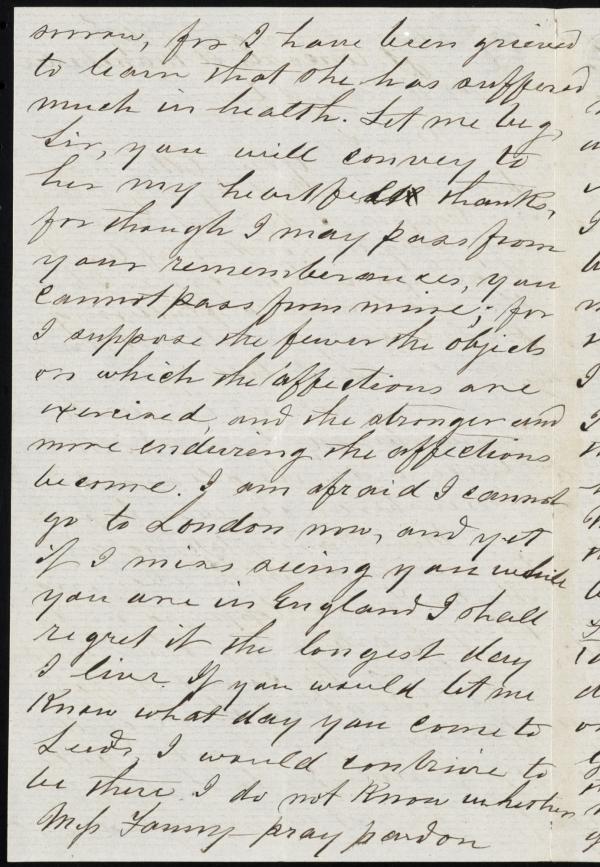 sorrow, for I have been grieved
to learn that she has suffered
much in health. Let me beg,
Sir, you will convey to
her my heartfelt thanks,
for though I may pass from
your rememberances, you
cannot pass from mine; for
I suppose the fewer the objects
on which the affections are
exercised, and the stronger and
more enduring the affections
become. I am afraid I cannot
go to London now, and yet
if I miss seeing you while
you are in England I shall
regret it the longest day
I live. If you would let me
Know what day you come to
Leeds I would contrive to
be there I do not Know whether
Miss Fanny - pray pardon